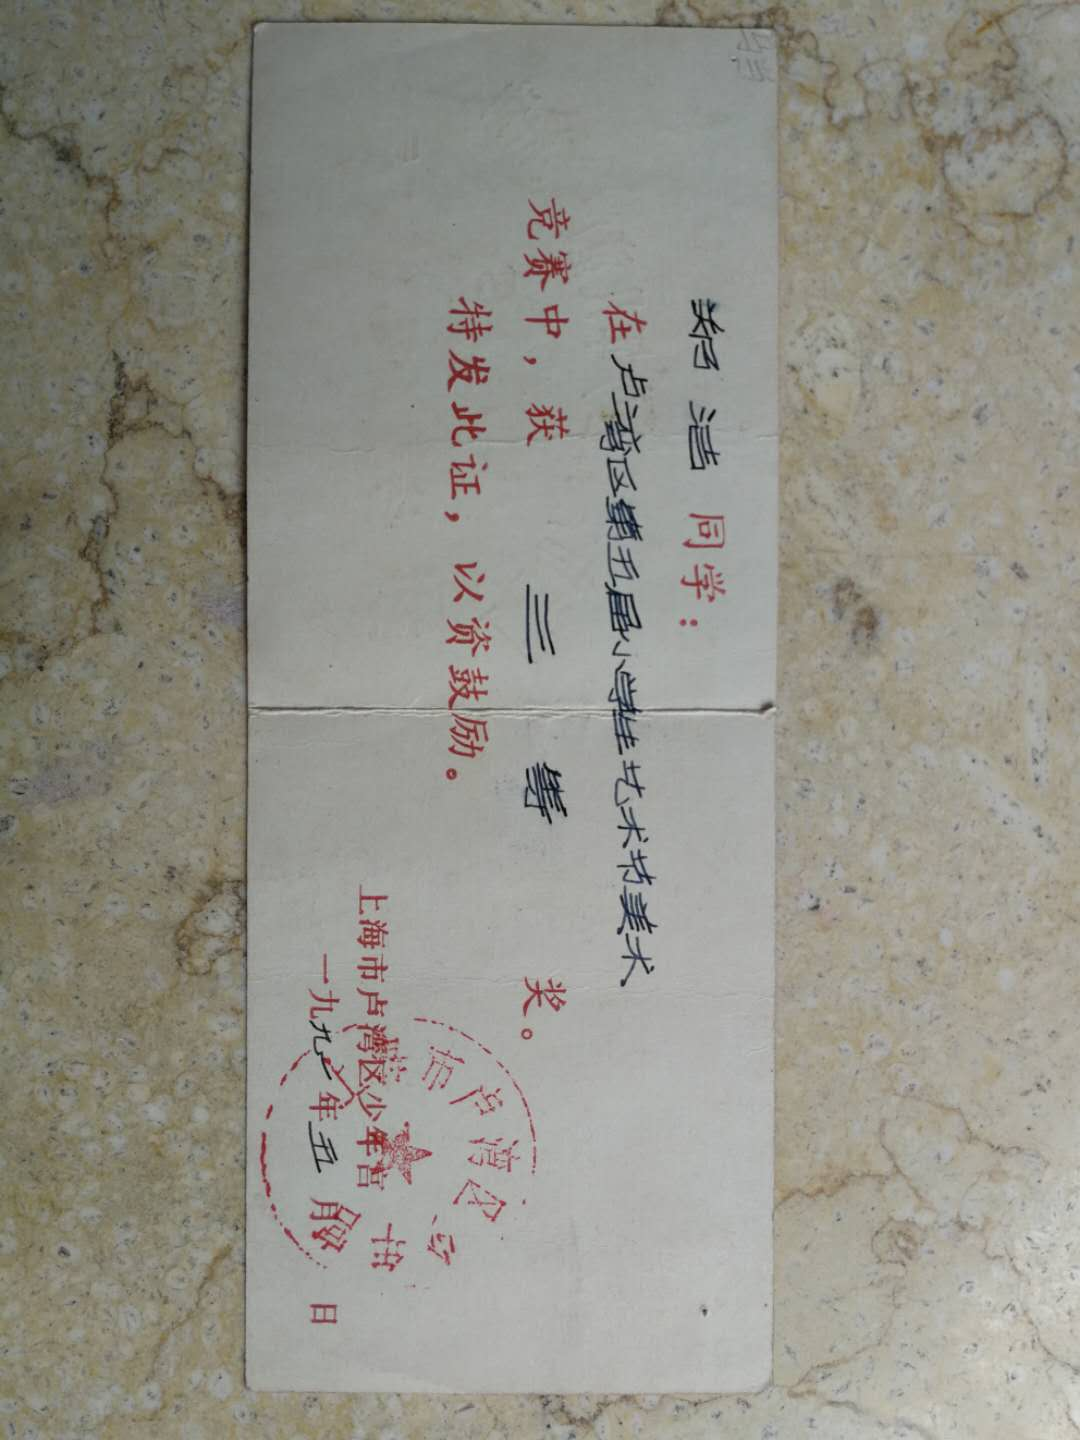 郑洁同学：
在卢湾区第五届小学生艺术节美术
竞赛中，获三等奖。
特发此证，以资鼓励。
上海市卢湾区少年宫
一九九一年五月 日